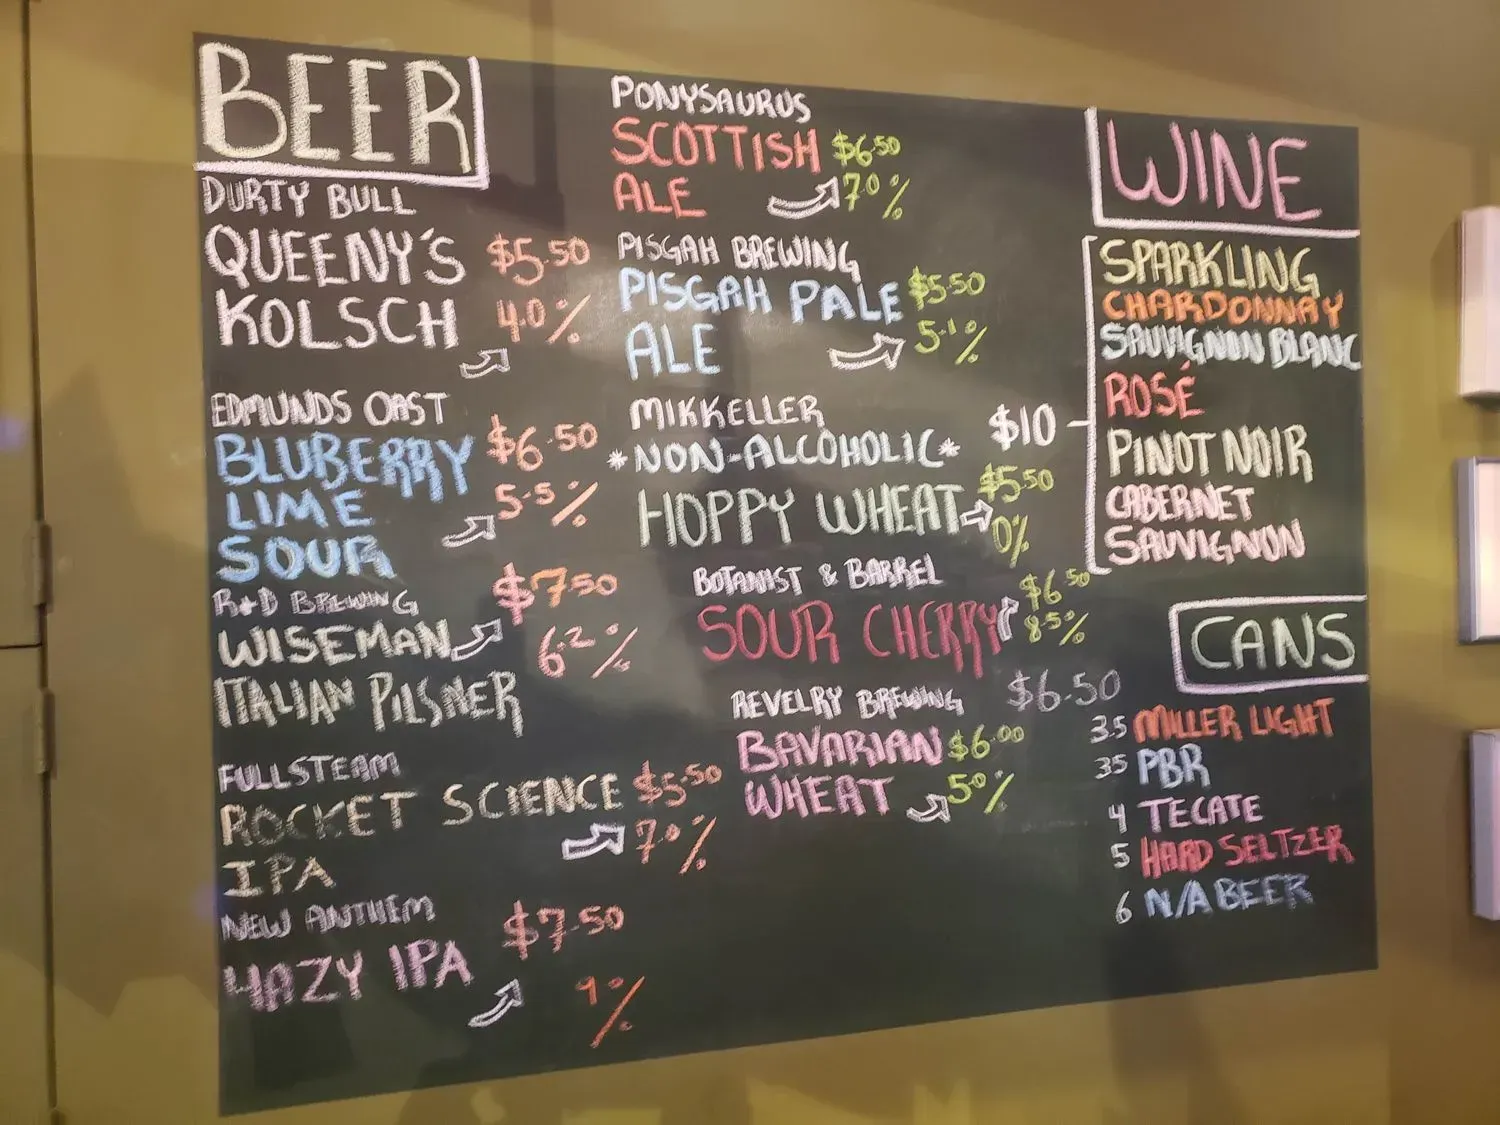 BEER
DURTY BULL
QUEENY'S $5.50
KOLSCH 4.0%
EDMUNDS OAST
BLUBERRY $6.50
LIME 5.5%
SOUR
R&D BREWING $7.50
WISEMAN 6.2%
ITALIAN PILSNER
FULLSTEAM
ROCKET SCIENCE $5.50
IPA 7.0%
NEW ANTHEM $7.50
HAZY IPA
9%
PONYSAURUS
SCOTTISH $6.50
ALE 7.0%
PISGAH BREWING
PISGAH PALE $5.50
ALE 5.1%
MIKKELLER
*NON-ALCOHOLIC*
HOPPY WHEAT $5.50
0%
BOTANIST & BARREL $6.50
SOUR CHERRY 8.5%
REVELRY BREWING $6.50
BAVARIAN $6.00
WHEAT 5.0%
WINE
SPARKLING
CHARDONNAY
SAUVIGNON BLANC
ROSÉ
$10
PINOT NOIR
CABERNET
SAUVIGNON
CANS
3.5 MILLER LIGHT
3.5 PBR
4 TECATE
5 HARD SELTZER
6 N/A BEER